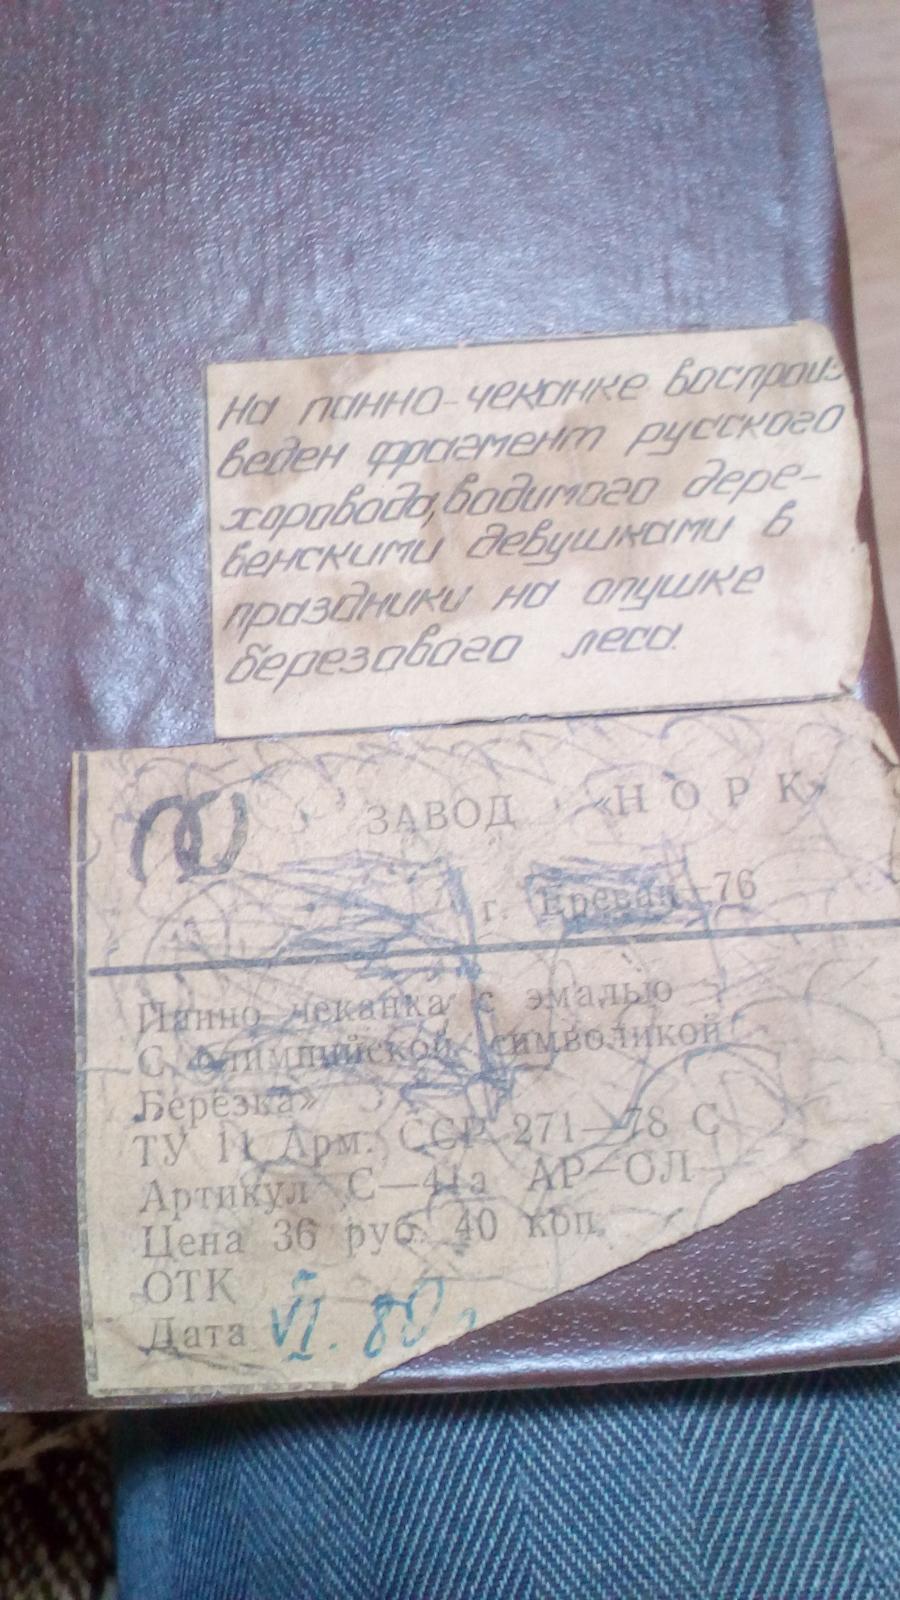 На панно-чеканке воспроиз-
веден фрагмент русского
хоровода, водимого дере-
венскими девушками в
праздники на опушке
березового леса.
ЗАВОД «НОРК»
г. Ереван—76
Панно чеканка с эмалью
С Олимпийской символикой
Березка»
ТУ 11 Арм. ССР 271—78 С
Артикул С—41а АР—ОЛ
Цена 36 руб. 40 коп.
ОТК
Дата VI. 80 г